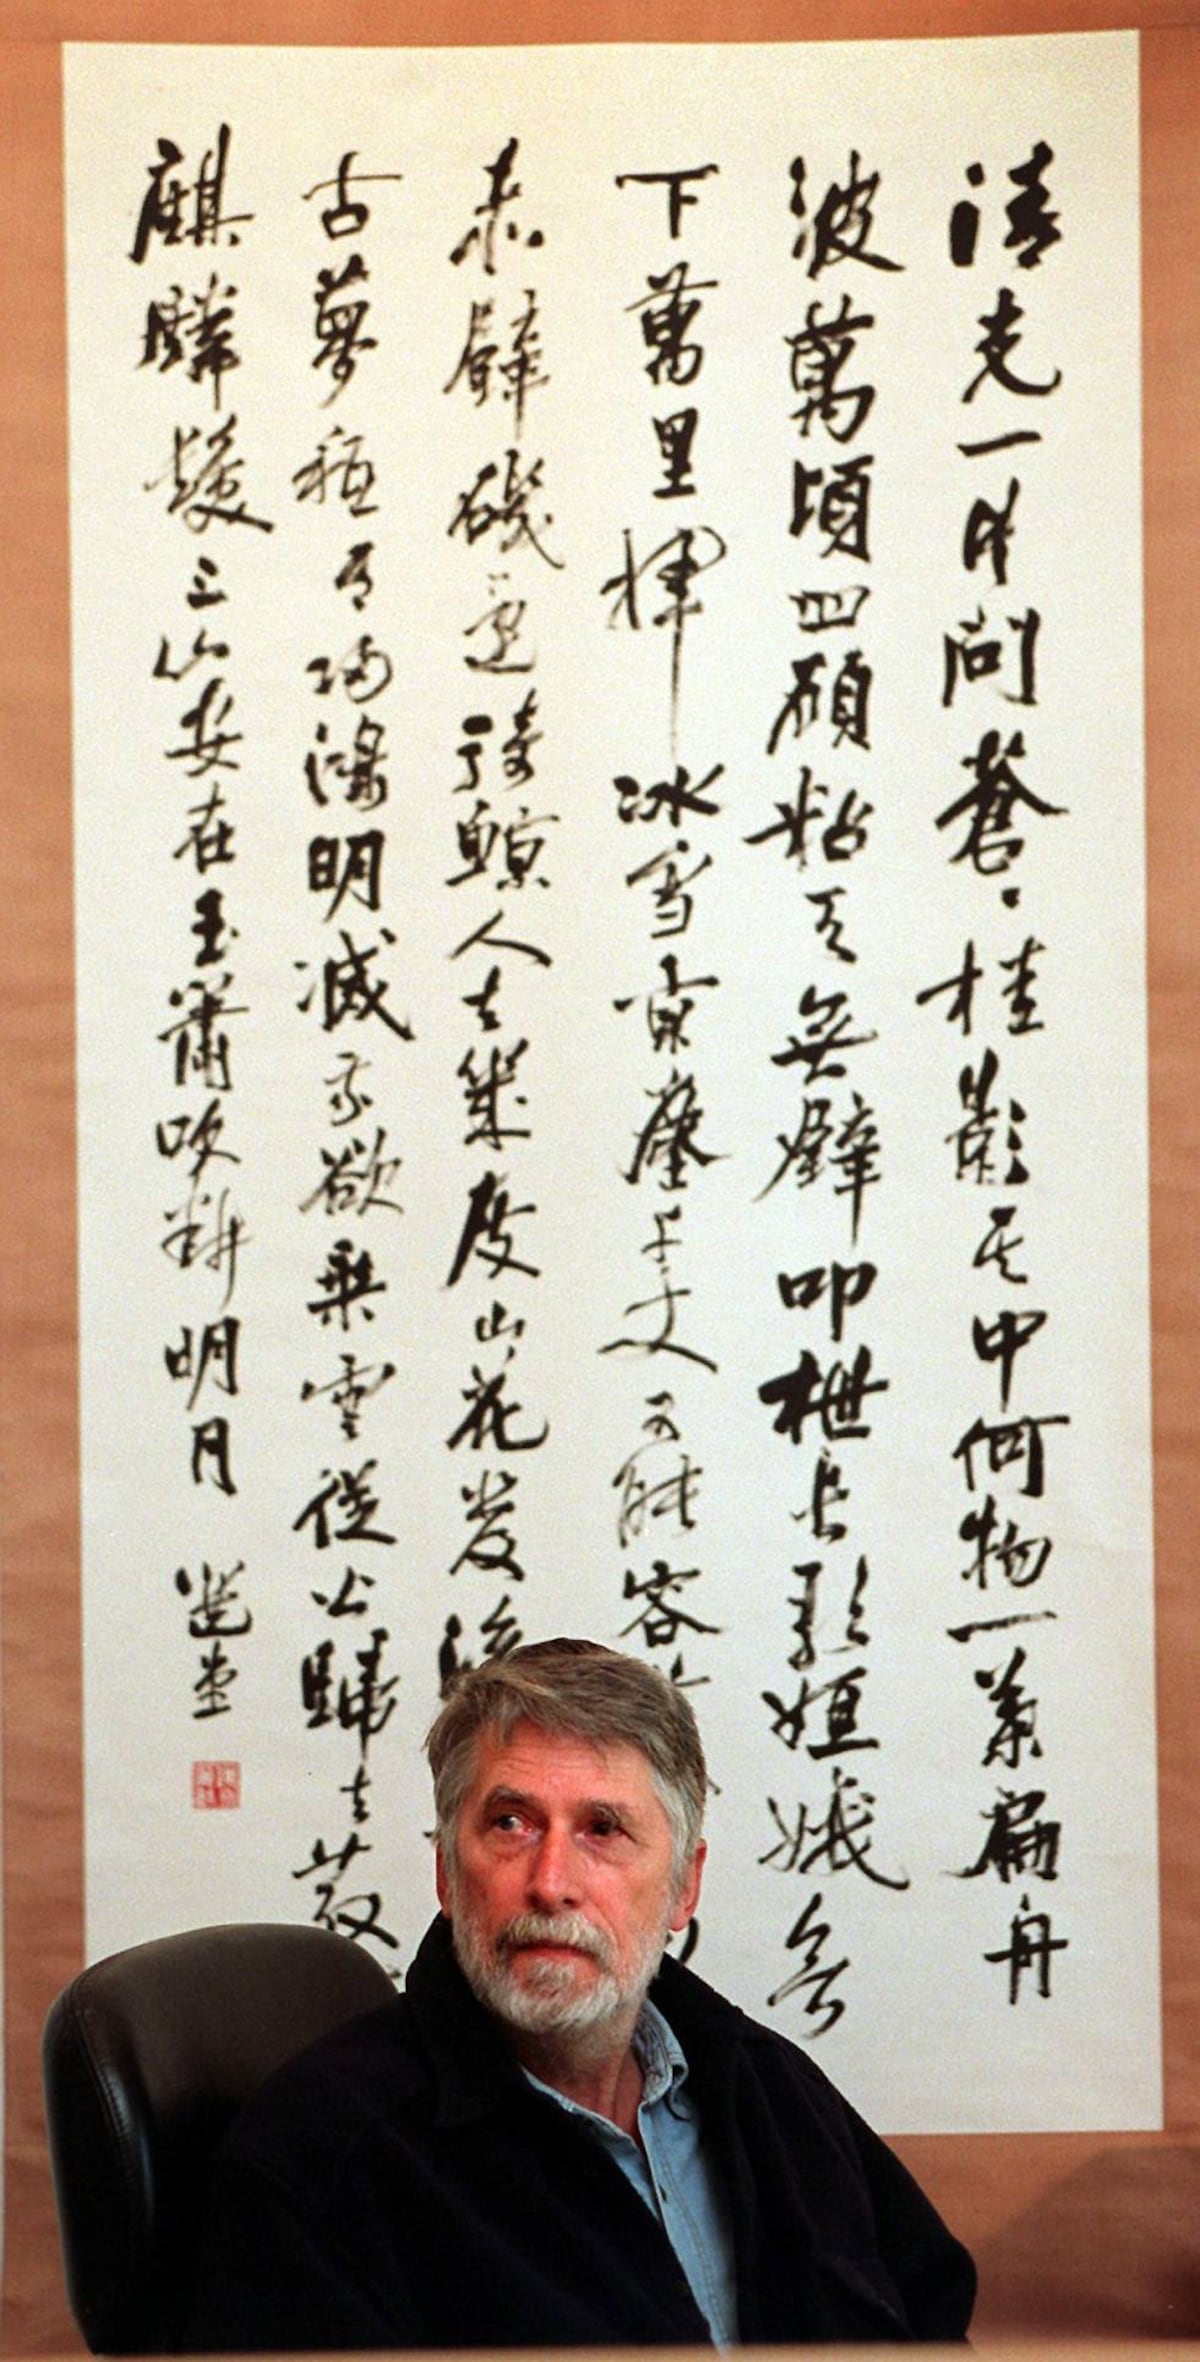 清光一片問蒼〻桂影其中何物一葉扁舟
波萬頃四顧粘天無壁叩枻長歌姮娥欲
下萬里揮冰雪京塵千丈可能容
赤壁磯邊騎鯨人去幾度山花發
古夢秪有歸鴻明滅我欲乘雲從公歸去散
麒麟髮三山安在玉簫吹斷明月 選堂